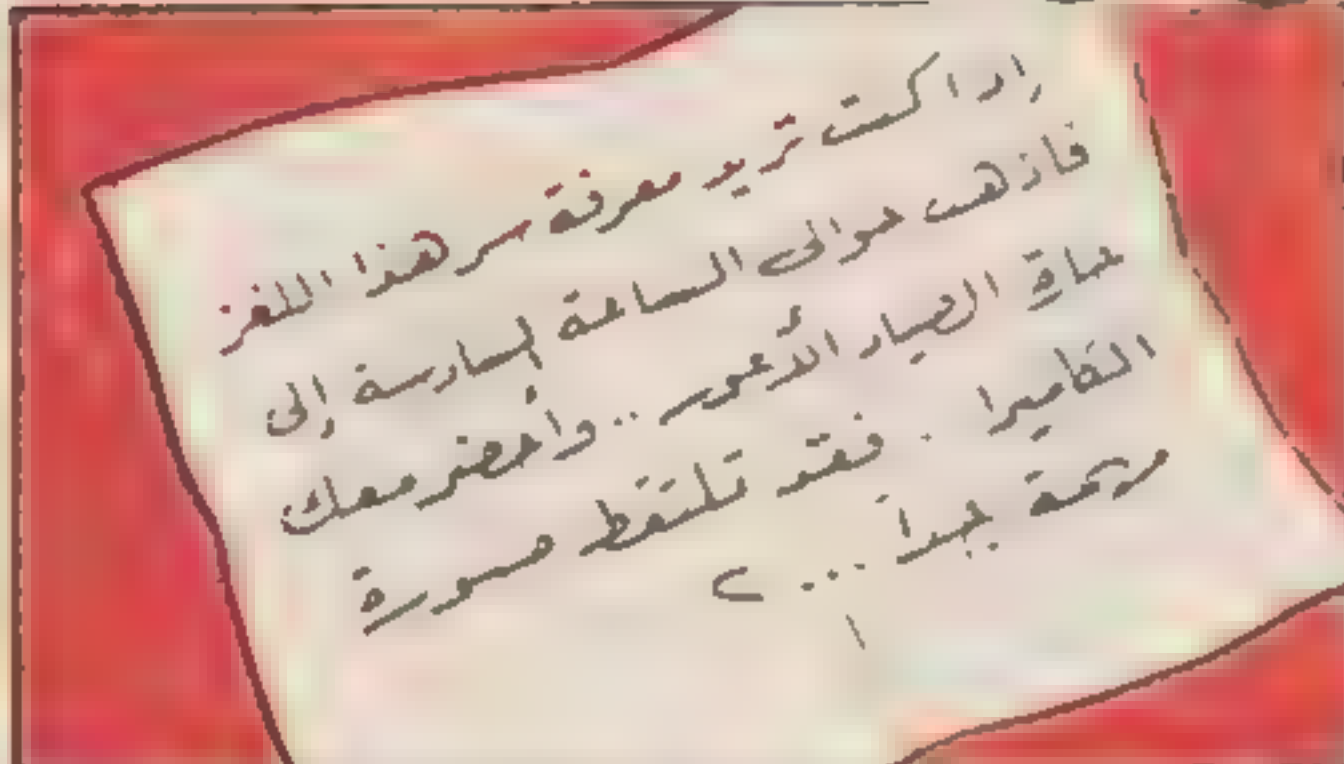 إذا كنت تريد معرفة سر هذا اللغز
فاذهب حوالى الساعة السادسة إلى
الصيار الأعور .. وأحضر معك
الكاميرا . فقد تلتقط صورة
مهمة جداً ...